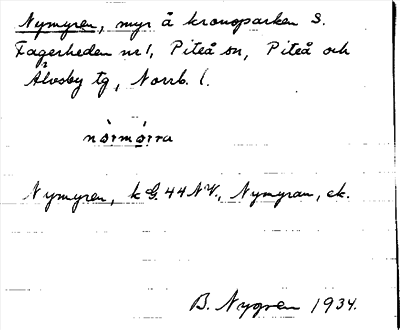 Nymyren, myr å kronoparken S.
Fagerheden nr 1, Piteå sn, Piteå och
Älvsby tg, Norrb. l.
Nymyren, k G. 44 NV., Nymyran, ek.
B. Nygren 1934.